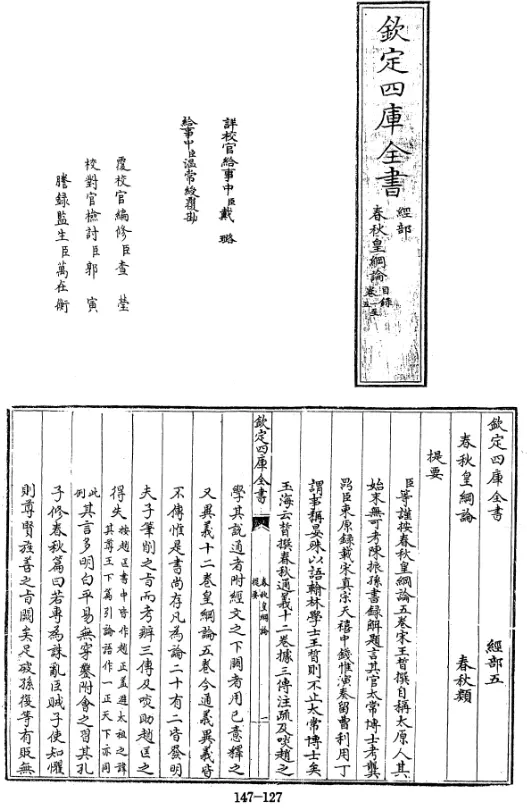 欽定四庫全書
經部
春秋皇綱論
目錄
卷一至
卷五
詳校官給事中臣戴璐
給事中臣溫常綬覆勘
覆校官編修臣查瑩
校對官檢討臣郭寅
謄錄監生臣萬在衡
欽定四庫全書 經部五
春秋皇綱論 春秋類
提要
臣等謹按春秋皇綱論五卷宋王晳撰自稱太原人其
始末無可考陳振孫書錄解題言其官太常博士考龔
鼎臣東原錄載宋真宗天禧中錢惟演奏留曹利用丁
謂事稱晏殊以語翰林學士王晳則不止太常博士矣
玉海云晳撰春秋通義十二卷據三傳注疏及啖趙之
欽定四庫全書
春秋皇綱論
提要
一
學其説通者附經文之下闕者用己意釋之
又異義十二卷皇綱論五卷今通義異義皆
不傳惟是書尚存凡為論二十有二皆發明
夫子筆削之旨而考辨三傳及啖助趙匡之
得失按趙匡書中皆作趙正蓋避太祖之諱
其尊王下篇引論語作一正天下亦同
此例其言多明白平易無穿鑿附會之習其孔
子修春秋篇曰若專為誅亂臣賊子使知懼
則尊賢旌善之旨闕矣足破孫復等有貶無
147-127